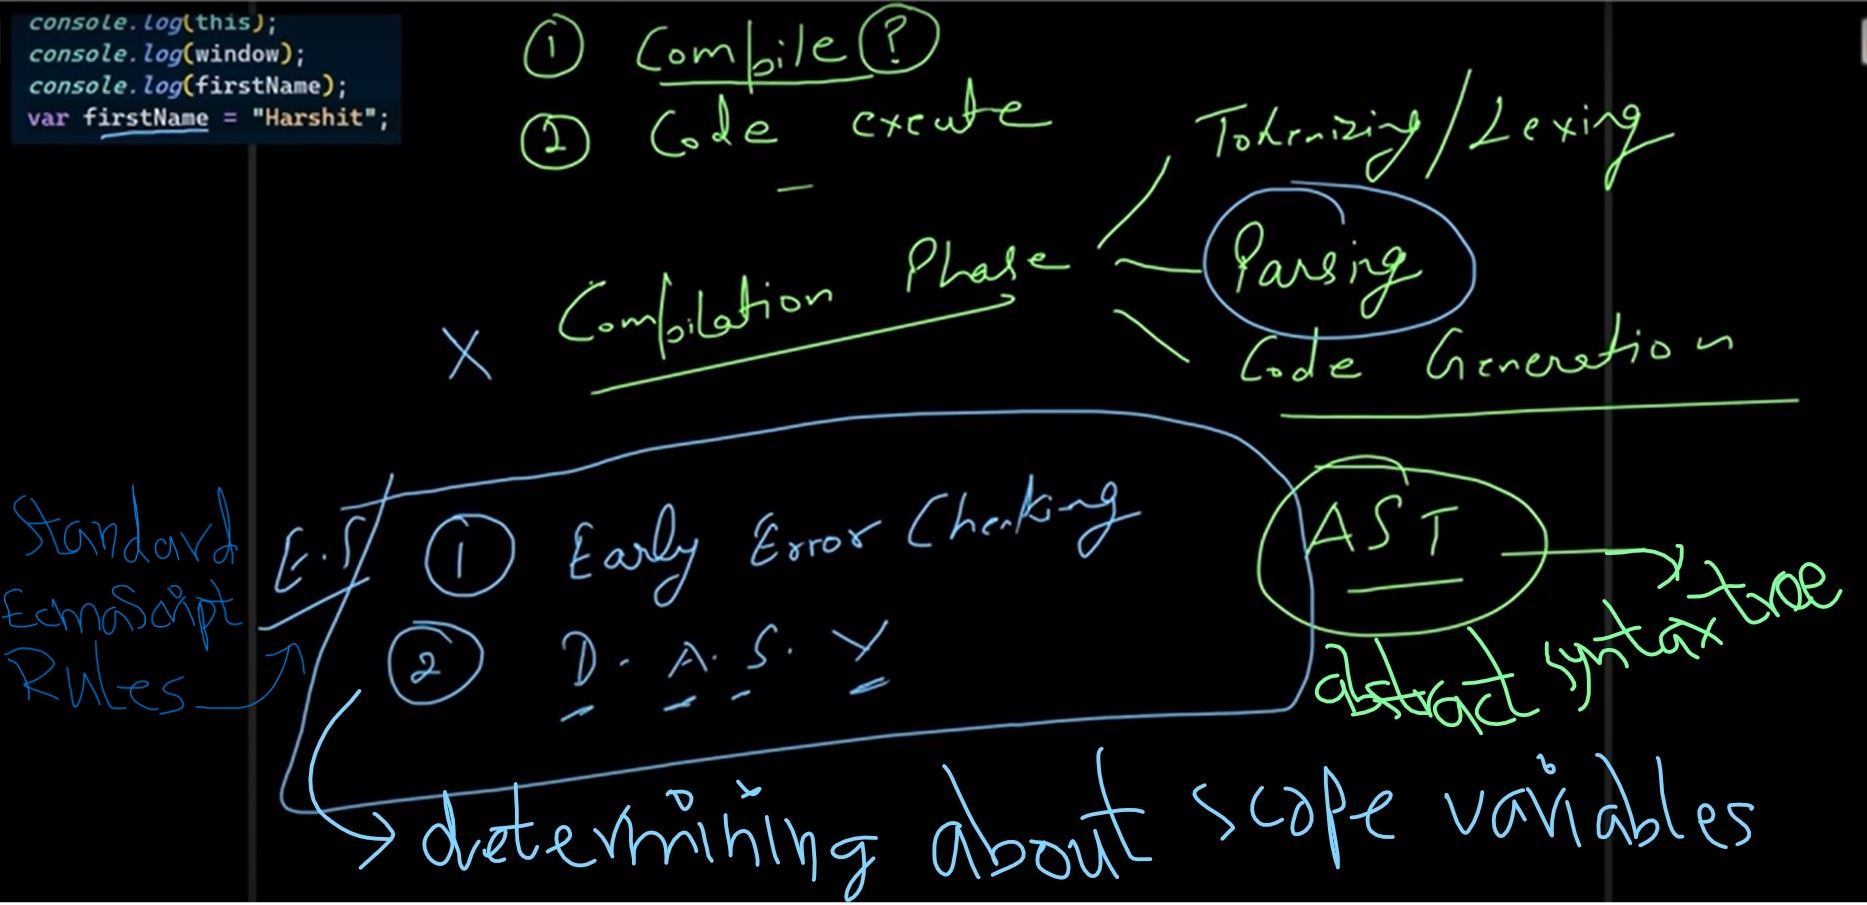 console.log(this);
console.log(window);
console.log(firstName);
var firstName = "Harshit";
① Compile ?
② Code execute
Compilation Phase
Tokenizing / Lexing
Parsing
Code Generation
X
Standard
EcmaScript
Rules
E.S
① Early Error Checking
② D. A. S. V
AST
abstract syntax tree
determining about scope variables